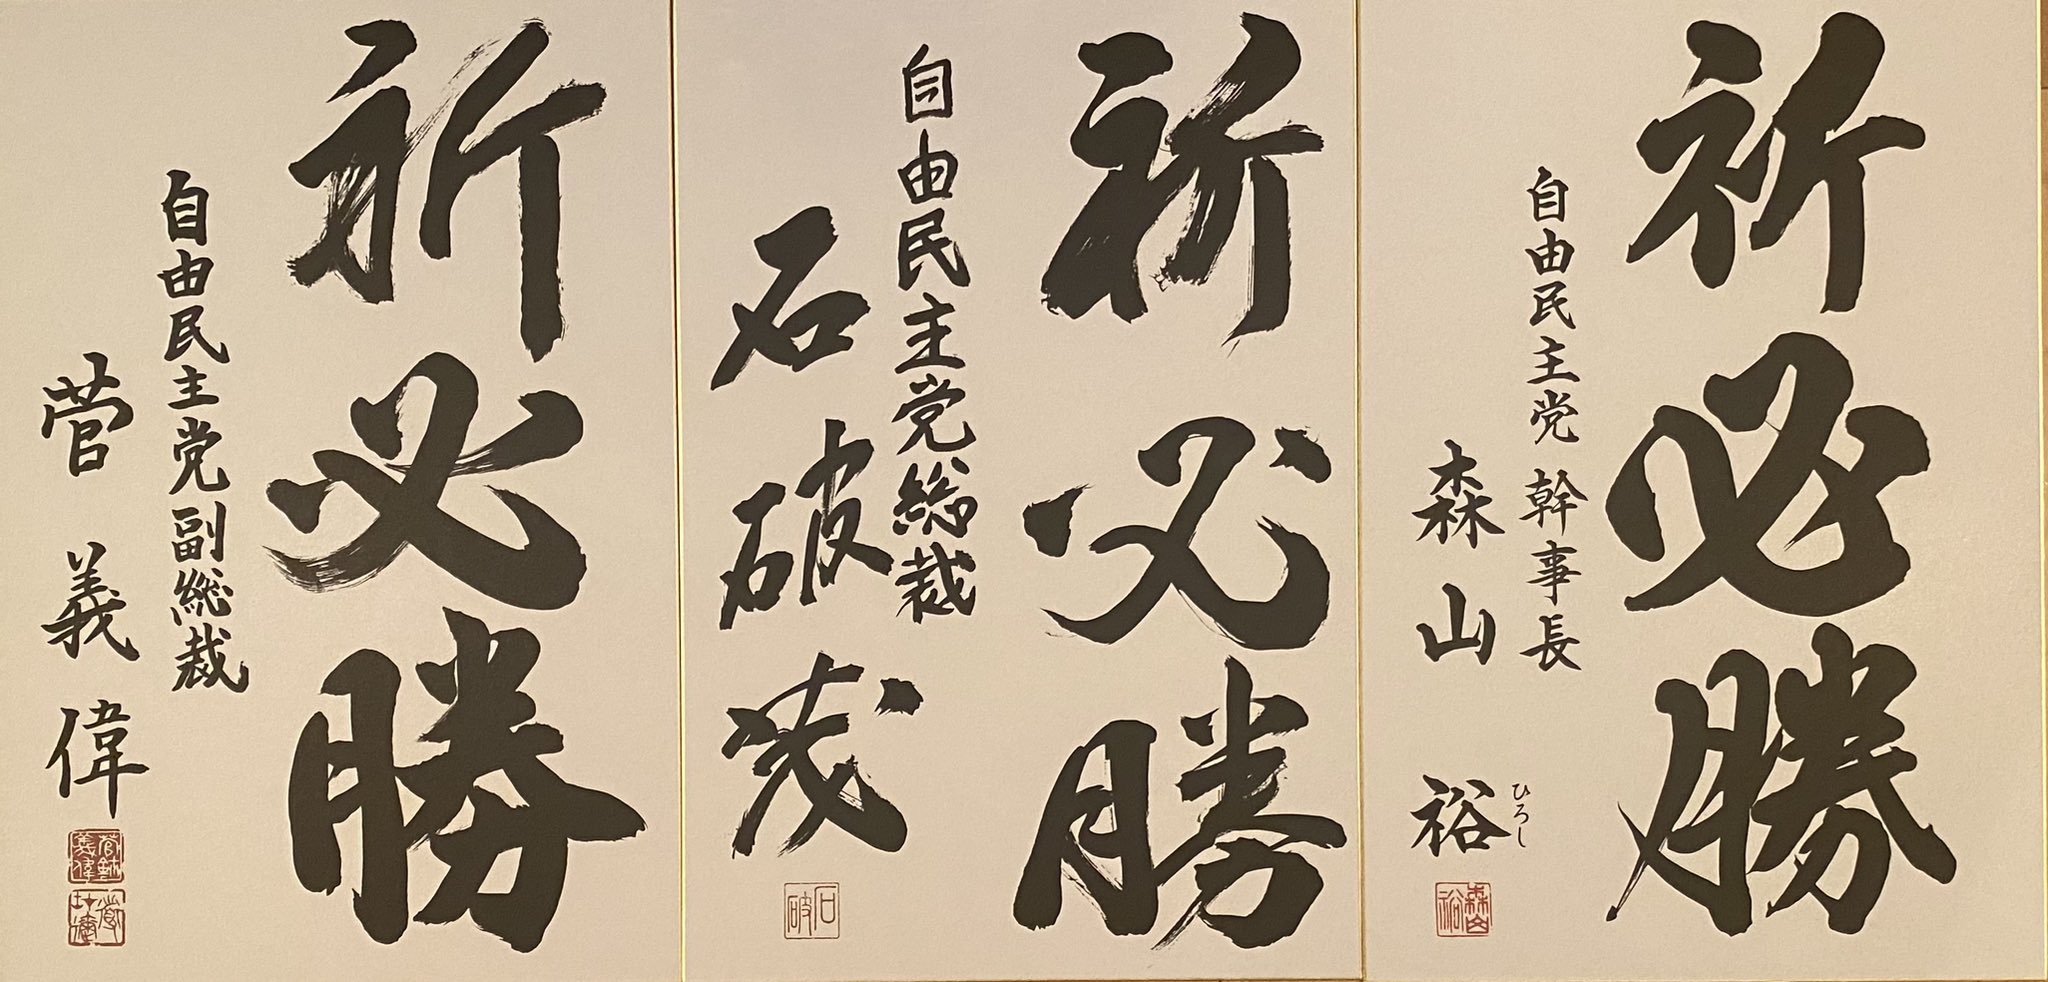 祈必勝
自由民主党 幹事長
森山 裕
ひろし
森山裕
祈必勝
自由民主党総裁
石破茂
石破
祈必勝
自由民主党副総裁
菅 義偉